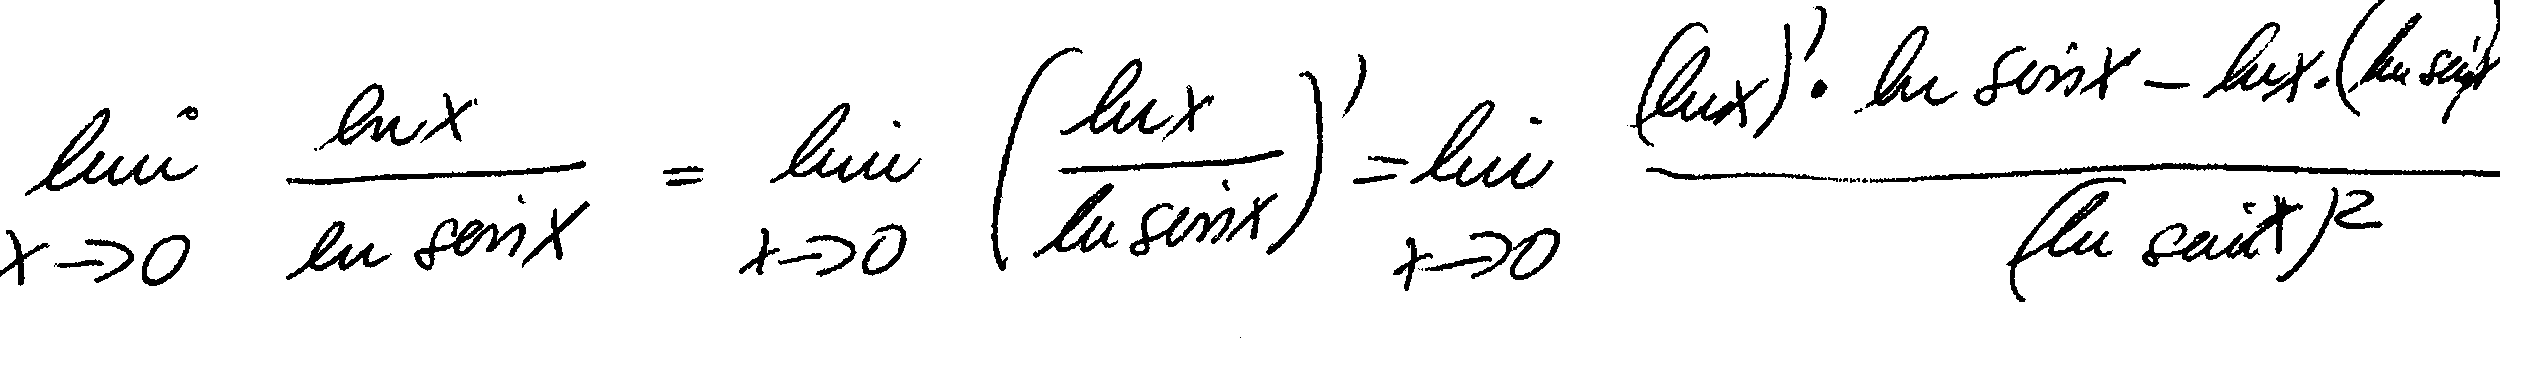 lim x→0 ln x / ln sin x = lim x→0 (ln x / ln sin x)' = lim x→0 ((ln x)' · ln sin x − ln x · (ln sin x) / (ln sin x)²